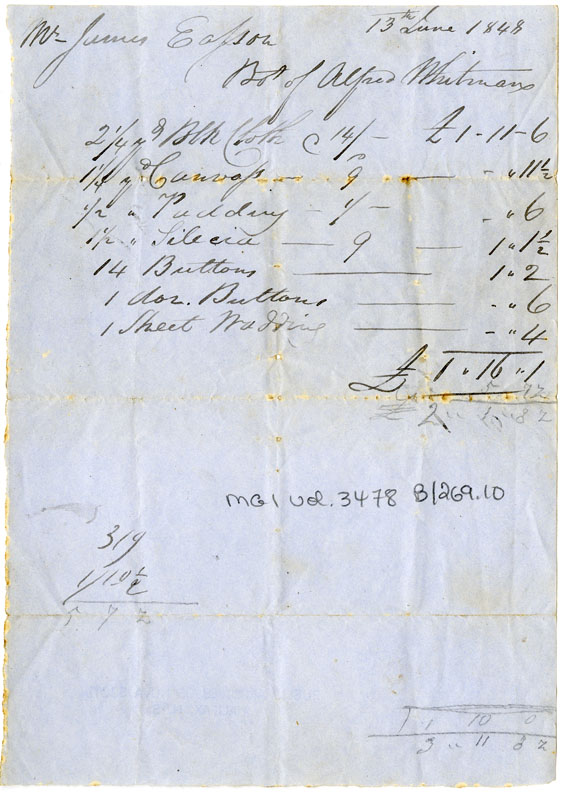 13th June 1848
Mr James Eason
Bot of Alfred Whitman
2 1/4 yd Blk Cloth @ 14/- £1-11-6
1 1/4 yd Canvass - 9 - - " 11 1/2
1/2 " Padding - 1/- - " 6
1 1/2 " Silecia - 9 - 1 " 1 1/2
14 Buttons - 1 " 2
1 doz. Buttons - - " 6
1 Sheet Wadding - - " 4
£ 1 " 16 " 1
MG1 Vol. 3478 B/269.10
3/9
1/10 1/2
5 7 1/2
1 10 0
3 " 11 8 1/2